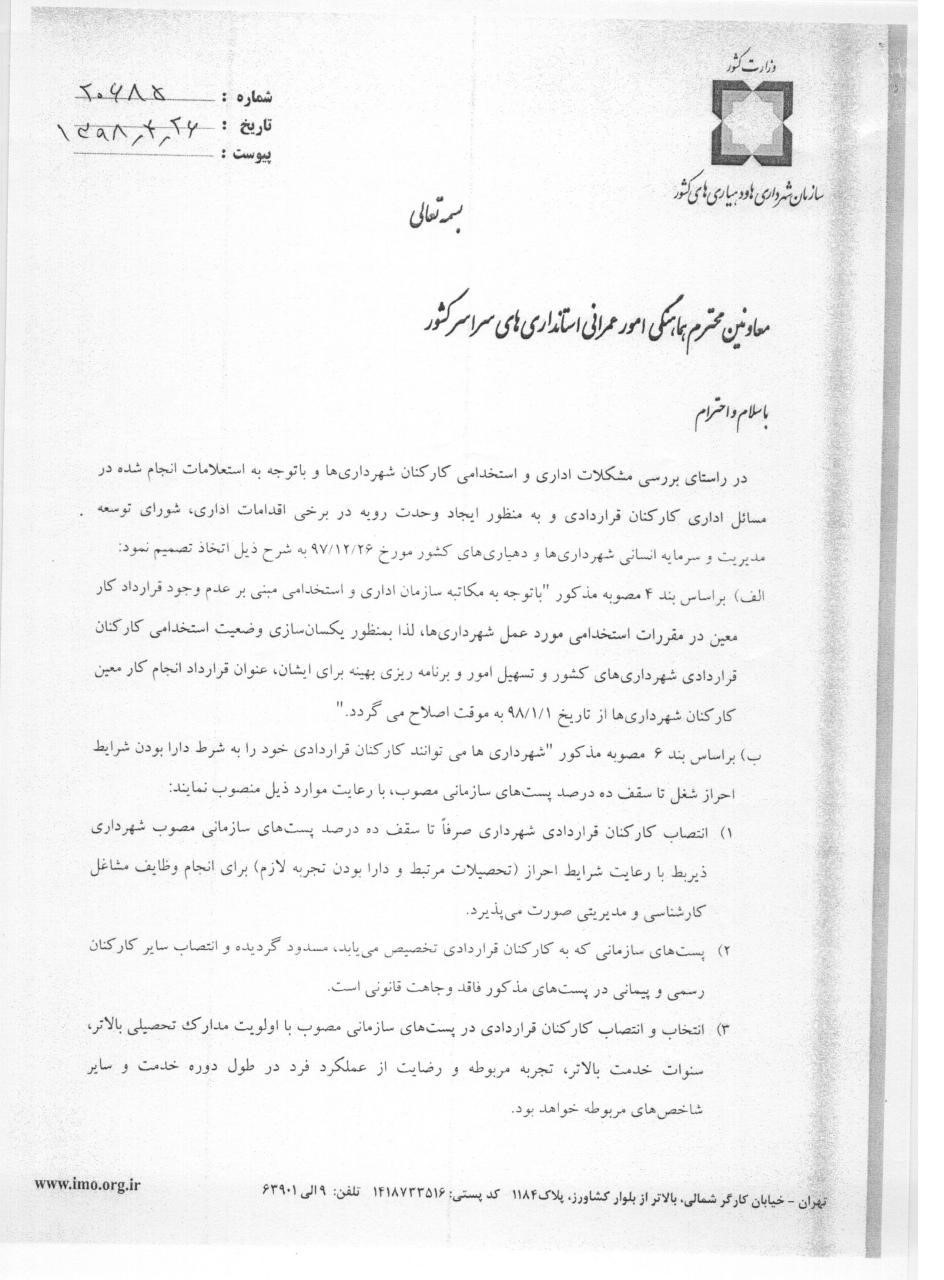 وزارت کشور
سازمان شهرداری ها و دهیاری های کشور
شماره : ۲۰۶۸۵
تاریخ : ۱۳۹۸،۴،۲۶
پیوست :
بسمه تعالی
معاونین محترم هماهنگی امور عمرانی استانداری های سراسر کشور
با سلام و احترام
در راستای بررسی مشکلات اداری و استخدامی کارکنان شهرداری‌ها و باتوجه به استعلامات انجام شده در
مسائل اداری کارکنان قراردادی و به منظور ایجاد وحدت رویه در برخی اقدامات اداری، شورای توسعه
مدیریت و سرمایه انسانی شهرداری‌ها و دهیاری‌های کشور مورخ ۹۷/۱۲/۲۶ به شرح ذیل اتخاذ تصمیم نمود:
الف) براساس بند ۴ مصوبه مذکور "باتوجه به مکاتبه سازمان اداری و استخدامی مبنی بر عدم وجود قرارداد کار
معین در مقررات استخدامی مورد عمل شهرداری‌ها، لذا بمنظور یکسان‌سازی وضعیت استخدامی کارکنان
قراردادی شهرداری‌های کشور و تسهیل امور و برنامه ریزی بهینه برای ایشان، عنوان قرارداد انجام کار معین
کارکنان شهرداری‌ها از تاریخ ۹۸/۱/۱ به موقت اصلاح می گردد."
ب) براساس بند ۶ مصوبه مذکور "شهرداری ها می توانند کارکنان قراردادی خود را به شرط دارا بودن شرایط
احراز شغل تا سقف ده درصد پست‌های سازمانی مصوب، با رعایت موارد ذیل منصوب نمایند:
۱) انتصاب کارکنان قراردادی شهرداری صرفاً تا سقف ده درصد پست‌های سازمانی مصوب شهرداری
ذیربط با رعایت شرایط احراز (تحصیلات مرتبط و دارا بودن تجربه لازم) برای انجام وظایف مشاغل
کارشناسی و مدیریتی صورت می‌پذیرد.
۲) پست‌های سازمانی که به کارکنان قراردادی تخصیص می‌یابد، مسدود گردیده و انتصاب سایر کارکنان
رسمی و پیمانی در پست‌های مذکور فاقد وجاهت قانونی است.
۳) انتخاب و انتصاب کارکنان قراردادی در پست‌های سازمانی مصوب با اولویت مدارک تحصیلی بالاتر،
سنوات خدمت بالاتر، تجربه مربوطه و رضایت از عملکرد فرد در طول دوره خدمت و سایر
شاخص‌های مربوطه خواهد بود.
تهران - خیابان کارگر شمالی، بالاتر از بلوار کشاورز، پلاک ۱۱۸۴ کد پستی: ۱۴۱۸۷۳۳۵۱۶ تلفن: ۹ الی ۶۳۹۰۱
www.imo.org.ir